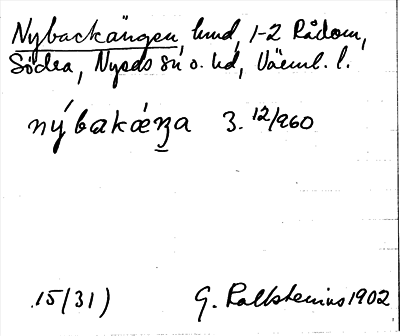 Nybackängen, hmd, 1-2 Rådom,
Södra, Nyeds sn o. hd, Värml. l.
nýbakǽŋa 3. 12/960
15(31) G. Kallstenius 1902